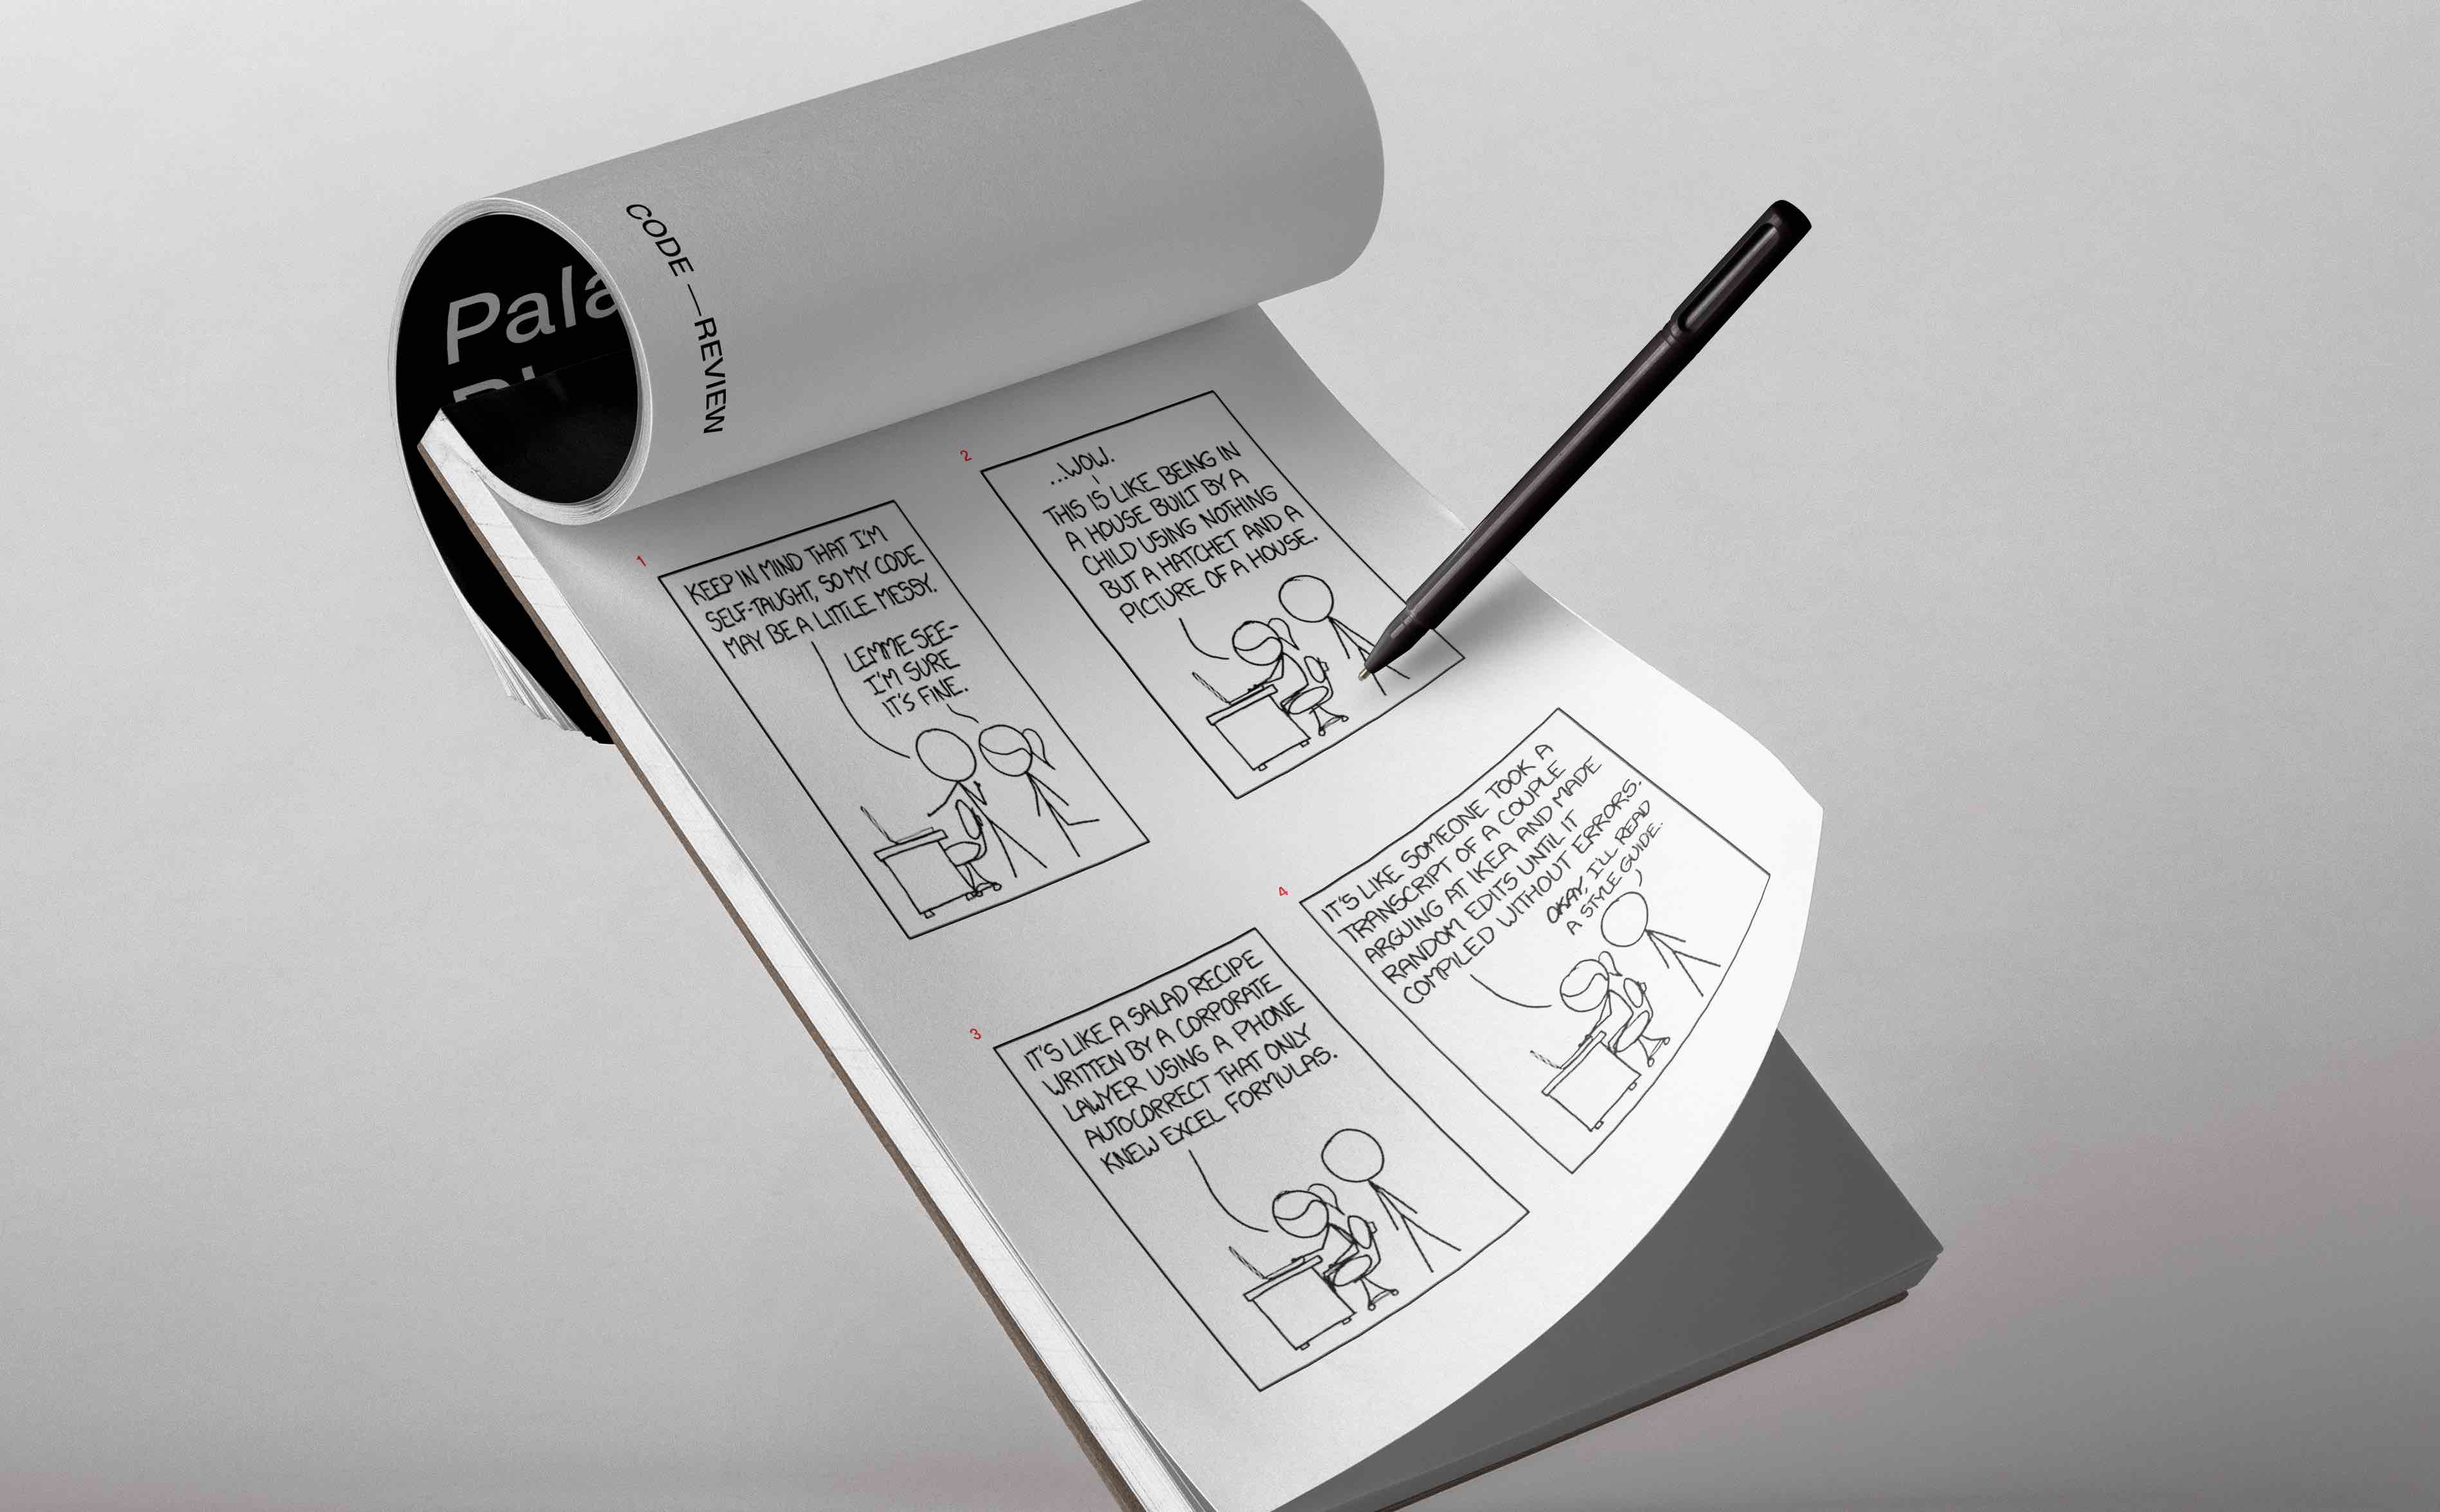 Pala
CODE —REVIEW
1
KEEP IN MIND THAT I'M
SELF-TAUGHT, SO MY CODE
MAY BE A LITTLE MESSY.
LEMME SEE-
I'M SURE
IT'S FINE.
2
...WOW.
THIS IS LIKE BEING IN
A HOUSE BUILT BY A
CHILD USING NOTHING
BUT A HATCHET AND A
PICTURE OF A HOUSE.
3
IT'S LIKE A SALAD RECIPE
WRITTEN BY A CORPORATE
LAWYER USING A PHONE
AUTOCORRECT THAT ONLY
KNEW EXCEL FORMULAS.
4
IT'S LIKE SOMEONE TOOK A
TRANSCRIPT OF A COUPLE
ARGUING AT IKEA AND MADE
RANDOM EDITS UNTIL IT
COMPILED WITHOUT ERRORS.
OKAY, I'LL READ
A STYLE GUIDE.